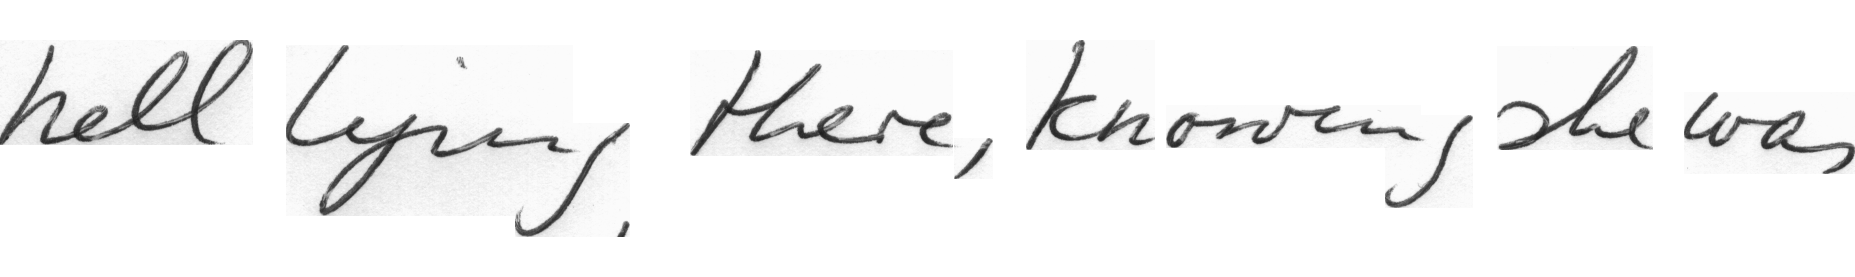 hell lying there, knowing she was